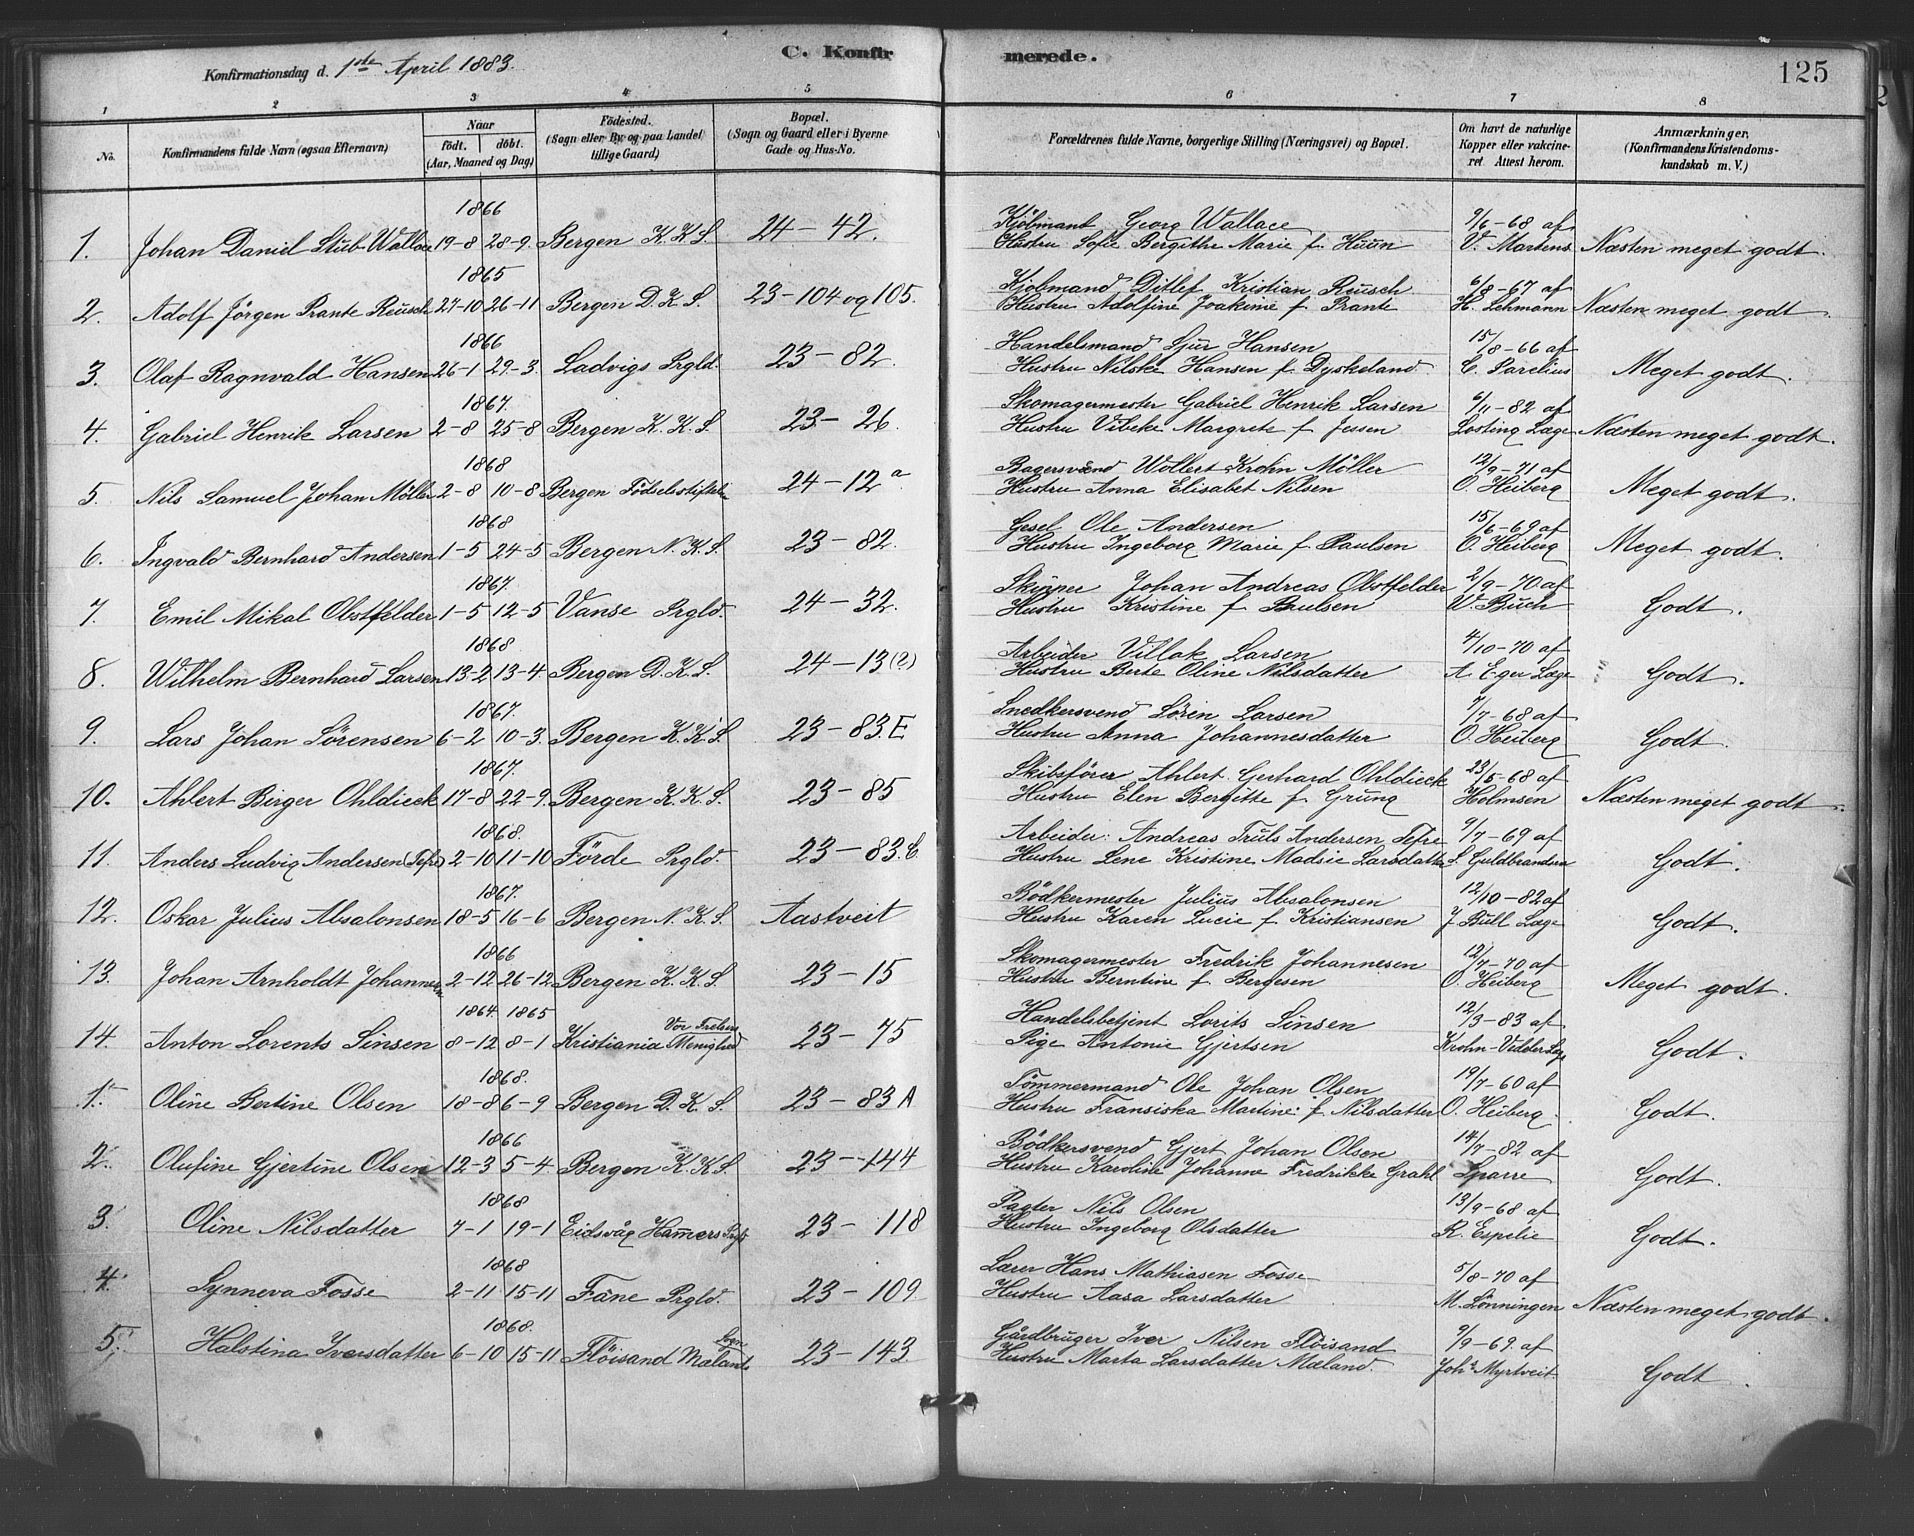 Konfirmationsdag d. 1ste April 1883.
C. Konfirmerede.
125
1 2 3 4 5 6 7 8
No.
Konfirmandens fulde Navn (ogsaa Efternavn)
Naar
födt. döbt.
(Aar, Maaned og Dag)
Födested.
(Sogn eller By og paa Landet
tillige Gaard)
Bopæl.
(Sogn og Gaard eller i Byerne
Gade og Hus-No.
Forældrenes fulde Navne, borgerlige Stilling (Næringsvei) og Bopæl.
Om havt de naturlige
Kopper eller vakcine-
ret. Attest herom.
Anmærkninger.
(Konfirmandens Kristendoms-
kundskab m. V.)
1866
1. Johan Daniel Stub Wallace 19-8 28-9. Bergen K.K.S. 24-42.
Kjöbmand Georg Wallace 9/6-68 af
Hustru Sofie Bergithe Marie f. Huun V. Martens Næsten meget godt.
1865
2. Adolf Jörgen Prante Reusch 27-10 26-11 Bergen D.K.S. 23-104 og 105.
Kjobmand Ditlef Kristian Reusch 6/8-67 af
Hustru Adolfine Joakime f. Prante H. Lehmann Næsten meget godt.
1866
3. Olaf Ragnvald Hansen 26-1 29-3. Ladvigs Prgld. 23-82.
Handelsmand Sjur Hansen 15/8-66 af
Hustru Nilske Hansen f. Dyskeland C. Parelius Meget godt.
1867.
4. Gabriel Henrik Larsen 2-8 25-8 Bergen K.K.S. 23-26.
Skomagermester Gabriel Henrik Larsen 6/11-82 af
Hustru Vibeke Margrete f. Jessen Losting Læge Næsten meget godt.
1868
5. Nils Samuel Johan Möller 2-8 10-8 Bergen Födselsstiftelse 24-12a
Bagersvend Wollert Krohn Möller 12/9-71 af
Hustru Anna Elisabet Nilsen O. Heiberg Meget godt.
1868
6. Ingvald Bernhard Andersen 1-5 24-5 Bergen N.K.S. 23-82.
Gesel Ole Andersen 15/6-69 af
Hustru Ingeborg Marie f. Paulsen O. Heiberg Meget godt.
1867.
7. Emil Mikal Obstfelder 1-5 12-5 Vanse Prgld. 24-32.
Skipper Johan Andreas Obstfelder 2/9-70 af
Hustru Kristine f. Paulsen W. Buch Godt.
1868
8. Wilhelm Bernhard Larsen 13-2 13-4 Bergen D.K.S. 24-13(2)
Arbeider Villak Larsen 4/10-70 af
Hustru Berte Oline Nilsdatter A. Eger Læge Godt.
1867.
9. Lars Johan Sörensen 6-2 10-3. Bergen K.K.S. 23-83.E
Snedkersvend Sören Larsen 7/7-68 af
Hustru Anna Johannesdatter O. Heiberg Godt.
1867.
10. Ahlert Birger Ohldieck 17-8 22-9. Bergen K.K.S. 23-85
Skibsförer Ahlert Gerhard Ohldieck 23/5-68 af
Hustru Elen Bergitte f. Grung Holmsen Næsten meget godt.
1868.
11. Anders Ludvig Andersen (Tefre) 2-10 11-10 Förde Prgld. 23-83.C.
Arbeider. Andreas Truls Andersen Tefre 9/7-69 af
Hustru Lene Kristine Madsie Larsdatter S. Guldbrandsen Godt.
1867.
12. Oskar Julius Absalonsen 18-5 16-6 Bergen N.K.S. Aastveit
Bödkermester Julius Absalonsen 12/10-82 af
Hustru Karen Lucie f. Kristiansen J. Bull Læge Godt.
1866
13. Johan Arnholdt Johannesen 2-12 26-12 Bergen K.K.S. 23-15
Skomagermester Fredrik Johannesen 12/7-70 af
Hustru Berntine f. Bergesen O. Heiberg Meget godt.
1864. 1865
14. Anton Lorents Sinsen 8-12 8-1 Kristiania Vor Frelsers Menighed 23-75
Handelsbetjent Lorits Sinsen 12/3-83 af
Pige Antonie Gjertsen Krohn-Vedeler Læge Godt.
1868.
1. Oline Bertine Olsen 18-8 6-9 Bergen D.K.S. 23-83A
Tömmermand Ole Johan Olsen 19/7-60 af
Hustru Fransiska Martine f. Nilsdatter O. Heiberg. Godt.
1866
2. Olufine Gjertine Olsen 12-3 5-4 Bergen K.K.S. 23-144
Bödkersvend Gjert Johan Olsen 14/7-82 af
Hustru Karoline Johanne Fredrikke Grahl Sparre Godt.
1868
3. Oline Nilsdatter 7-1 19-1 Eidsvåg Hamers Prgld 23-118
Pagter Nils Olsen 13/9-68 af
Hustru Ingeborg Olsdatter R. Espelie Godt.
1868
4. Synneva Fosse 2-11 15-11 Fane Prgld. 23-109
Lærer Hans Mathiasen Fosse 5/8-70 af
Hustru Aasa Larsdatter M. Lönningen Næsten meget godt.
1868.
5. Halstina Iversdatter 6-10 15-11 Flöisand Mælands Sogn 23-143
Gårdbruger Iver Nilsen Flöisand 9/9-69. af
Hustru Marta Larsdatter Mæland. Johs. Myrtveit Godt.